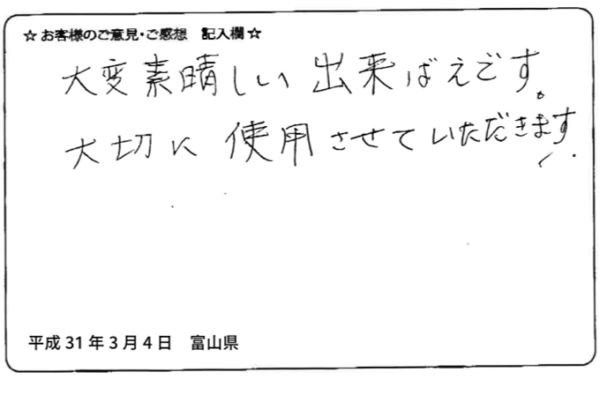 ☆お客様のご意見・ご感想 記入欄☆
大変素晴しい出来ばえです。
大切に使用させていただきます
平成31年3月4日 富山県